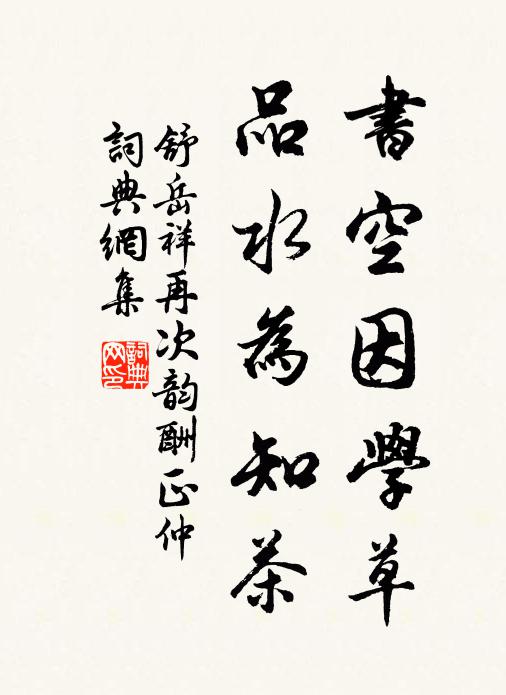 書空因學草
品水為知茶
舒岳祥再次韵酬正仲
詞典網集
詞典網印